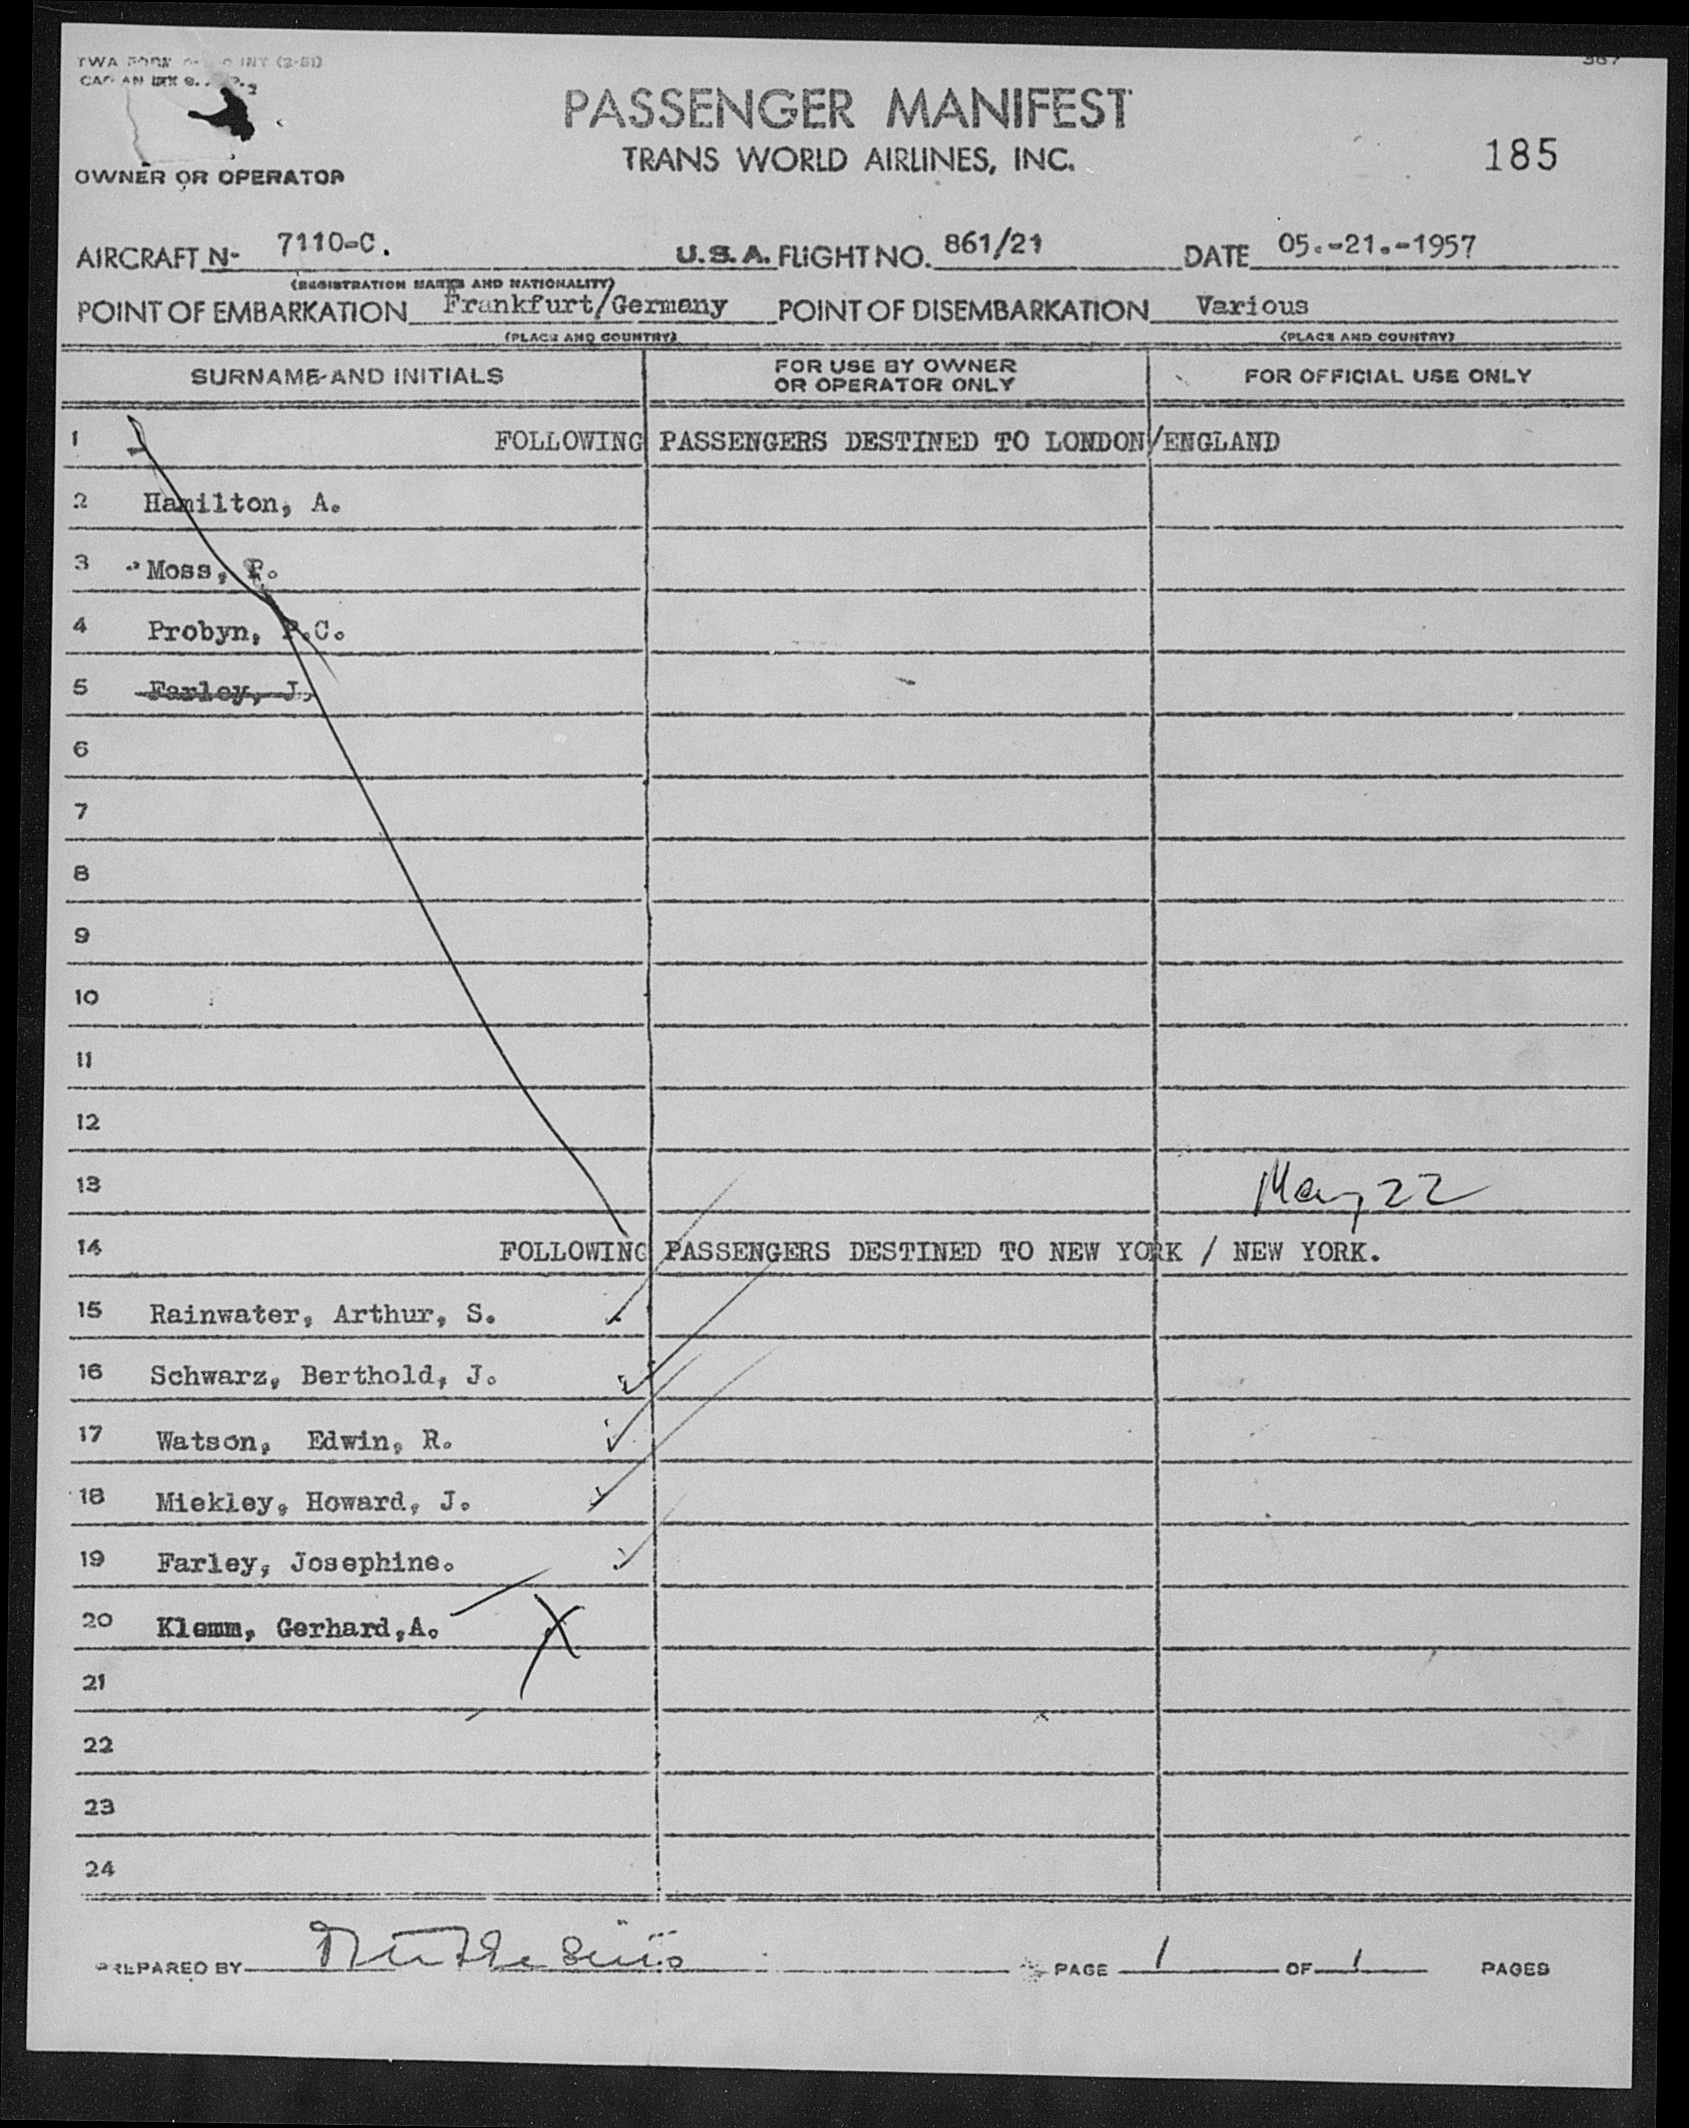 PASSENGER MANIFEST
TRANS WORLD AIRLINES, INC.
185
OWNER OR OPERATOR
AIRCRAFT N- 7110-C. U.S.A. FLIGHT NO. 861/21 DATE 05.-21.-1957
(REGISTRATION MARKS AND NATIONALITY)
POINT OF EMBARKATION Frankfurt/Germany POINT OF DISEMBARKATION Various
(PLACE AND COUNTRY) (PLACE AND COUNTRY)
SURNAME AND INITIALS FOR USE BY OWNER OR OPERATOR ONLY FOR OFFICIAL USE ONLY
1 FOLLOWING PASSENGERS DESTINED TO LONDON/ENGLAND
2 Hamilton, A.
3 Moss, P.
4 Probyn, P.C.
5 Farley, J.
6
7
8
9
10
11
12
13 May 22
14 FOLLOWING PASSENGERS DESTINED TO NEW YORK / NEW YORK.
15 Rainwater, Arthur, S.
16 Schwarz, Berthold, J.
17 Watson, Edwin, R.
18 Miekley, Howard, J.
19 Farley, Josephine.
20 Klemm, Gerhard,A.
21
22
23
24
PREPARED BY PAGE 1 OF 1 PAGES